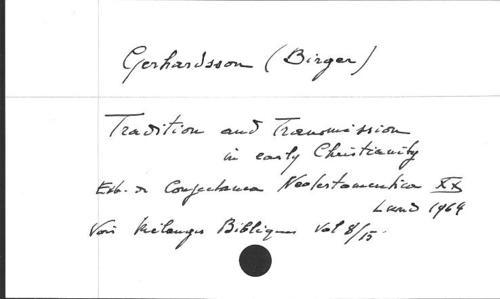 Gerhardsson (Birger)
Tradition and Transmission
in early Christianity
Extr. de Conjectanea Neotestamentica XX
Lund 1964
Voir Mélanges Bibliques Vol 8/15.